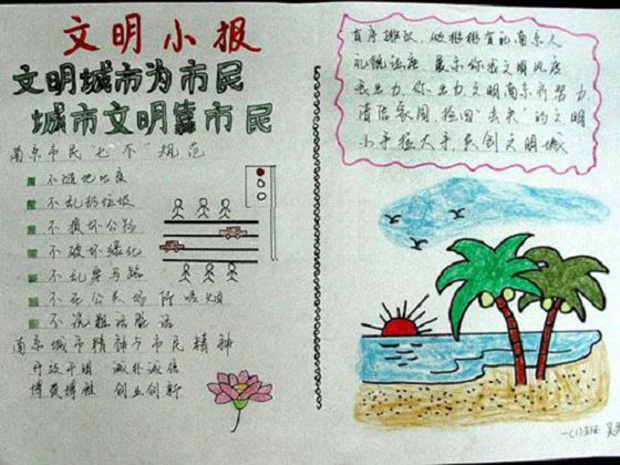 文明小报
文明城市为市民
城市文明靠市民
南京市民"七不"规范
不随地吐痰
不乱扔垃圾
不损坏公物
不破坏绿化
不乱穿马路
不在公共场所吸烟
不说粗话脏话
南京城市精神与市民精神
开放开明 诚朴诚信
博爱博雅 创业创新
有序排放，做彬彬有礼南京人
礼貌谦虚，展示你我文明风度
我出力，你出力，文明南京齐努力
清洁家园，捡回"丢失"的文明
小手拉大手，共创文明城